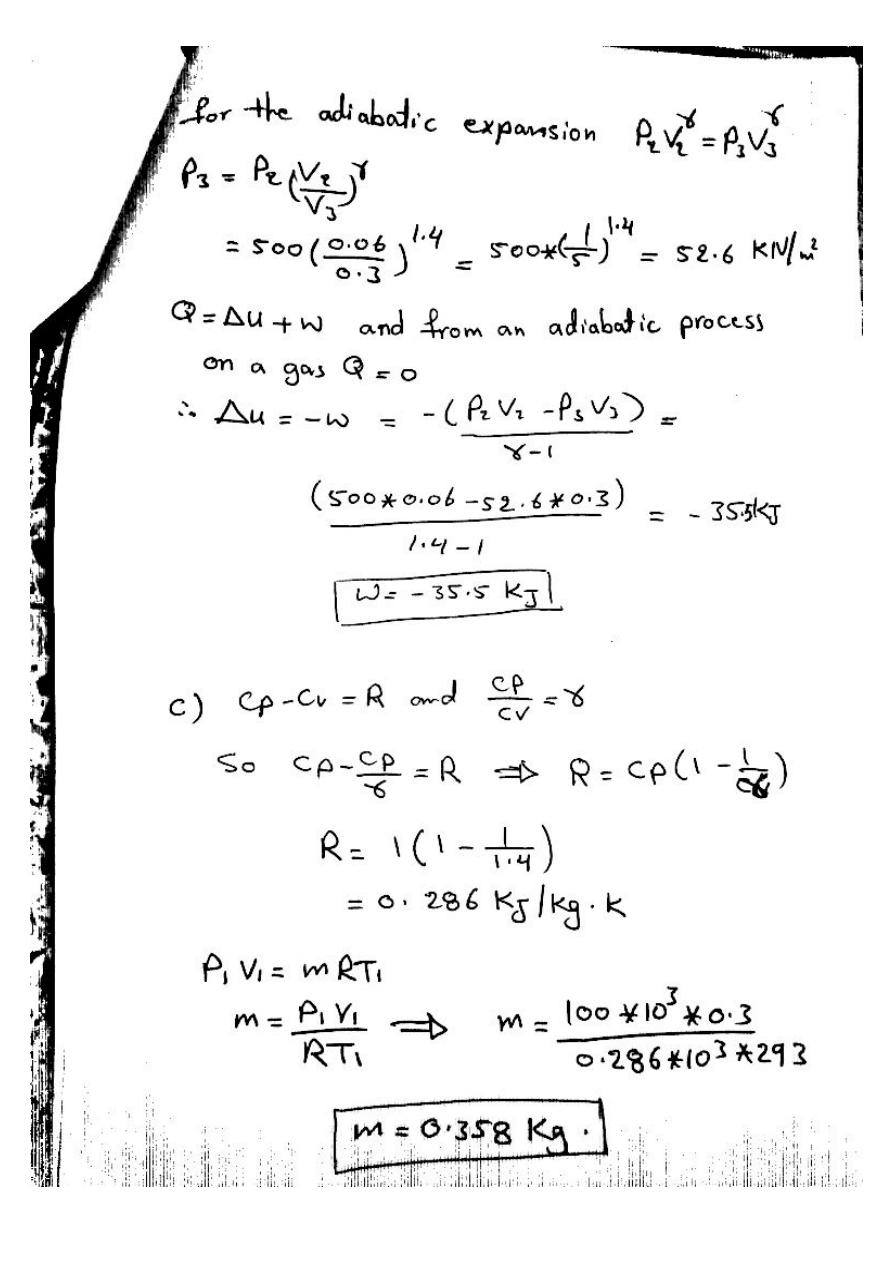 for the adiabatic expansion P₂V₂^γ = P₃V₃^γ
P₃ = P₂(V₂/V₃)^γ
= 500(0.06/0.3)^1.4 = 500*(1/5)^1.4 = 52.6 KN/m²
Q = ΔU + W and from an adiabatic process
on a gas Q = 0
∴ Δu = -W = -(P₂V₂ - P₃V₃)/γ-1 =
(500*0.06 - 52.6*0.3)/1.4-1 = - 35.5kJ
W = - 35.5 KJ
c) Cp - Cv = R and CP/CV = γ
So CP - CP/γ = R ⇒ R = CP(1 - 1/γ)
R = 1(1 - 1/1.4)
= 0.286 KJ/kg.K
P₁V₁ = mRT₁
m = P₁V₁/RT₁ ⇒ m = 100*10³*0.3/0.286*10³*293
m = 0.358 Kg.